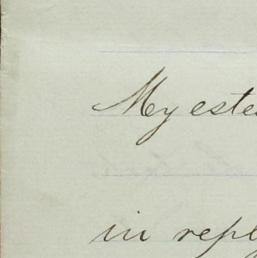 My este
in repl